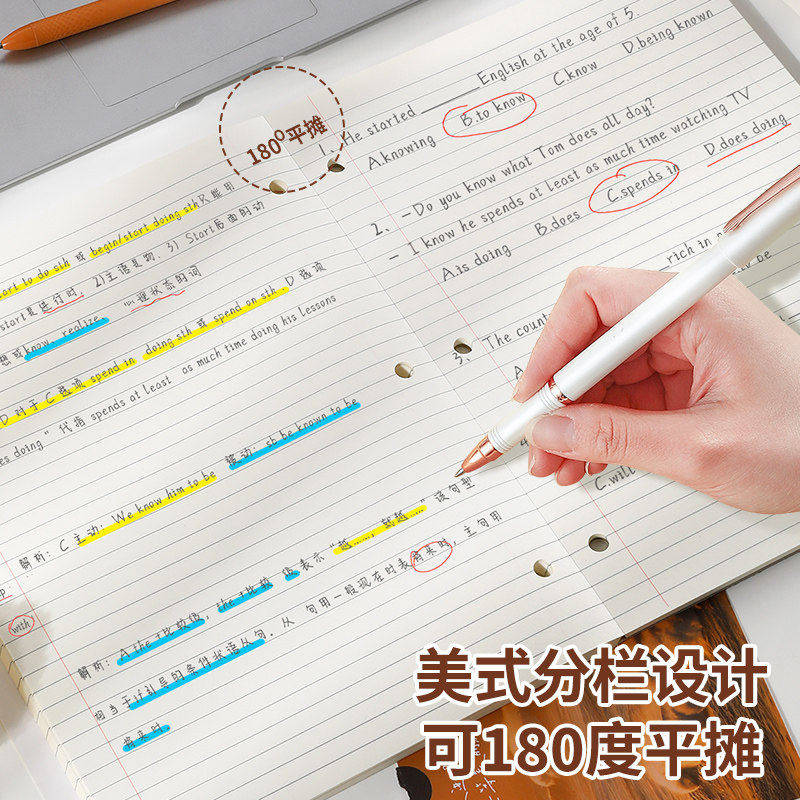 180°平摊
1、He started ______ English at the age of 5.
A.knowing B.to know C.know D.being known
2、-Do you know what Tom does all day?
- I know he spends at least as much time watching TV
A.is doing B.does C.spends in D.does doing
rich in
3、The count
be
A
C.will
tart to do sth 或 begin/start doing sth 只能用
start是进行时, 2)主语是物、3) Start后面的动
想或know, realize 心理状态的词
D 对于 C 选项 spend in doing sth 或 spend on sth. D 选项
es doing" 代指 spends at least as much time doing his lessons
解析: C 主动: We know him to be 被动: sb be known to be
with
解析: A the +比较级, the +比较级 表示 "越……, 就越……" 该句型
相当于if引导的条件状语从句. 从句用一般现在时表将来时, 主句用
将来时
美式分栏设计
可180度平摊